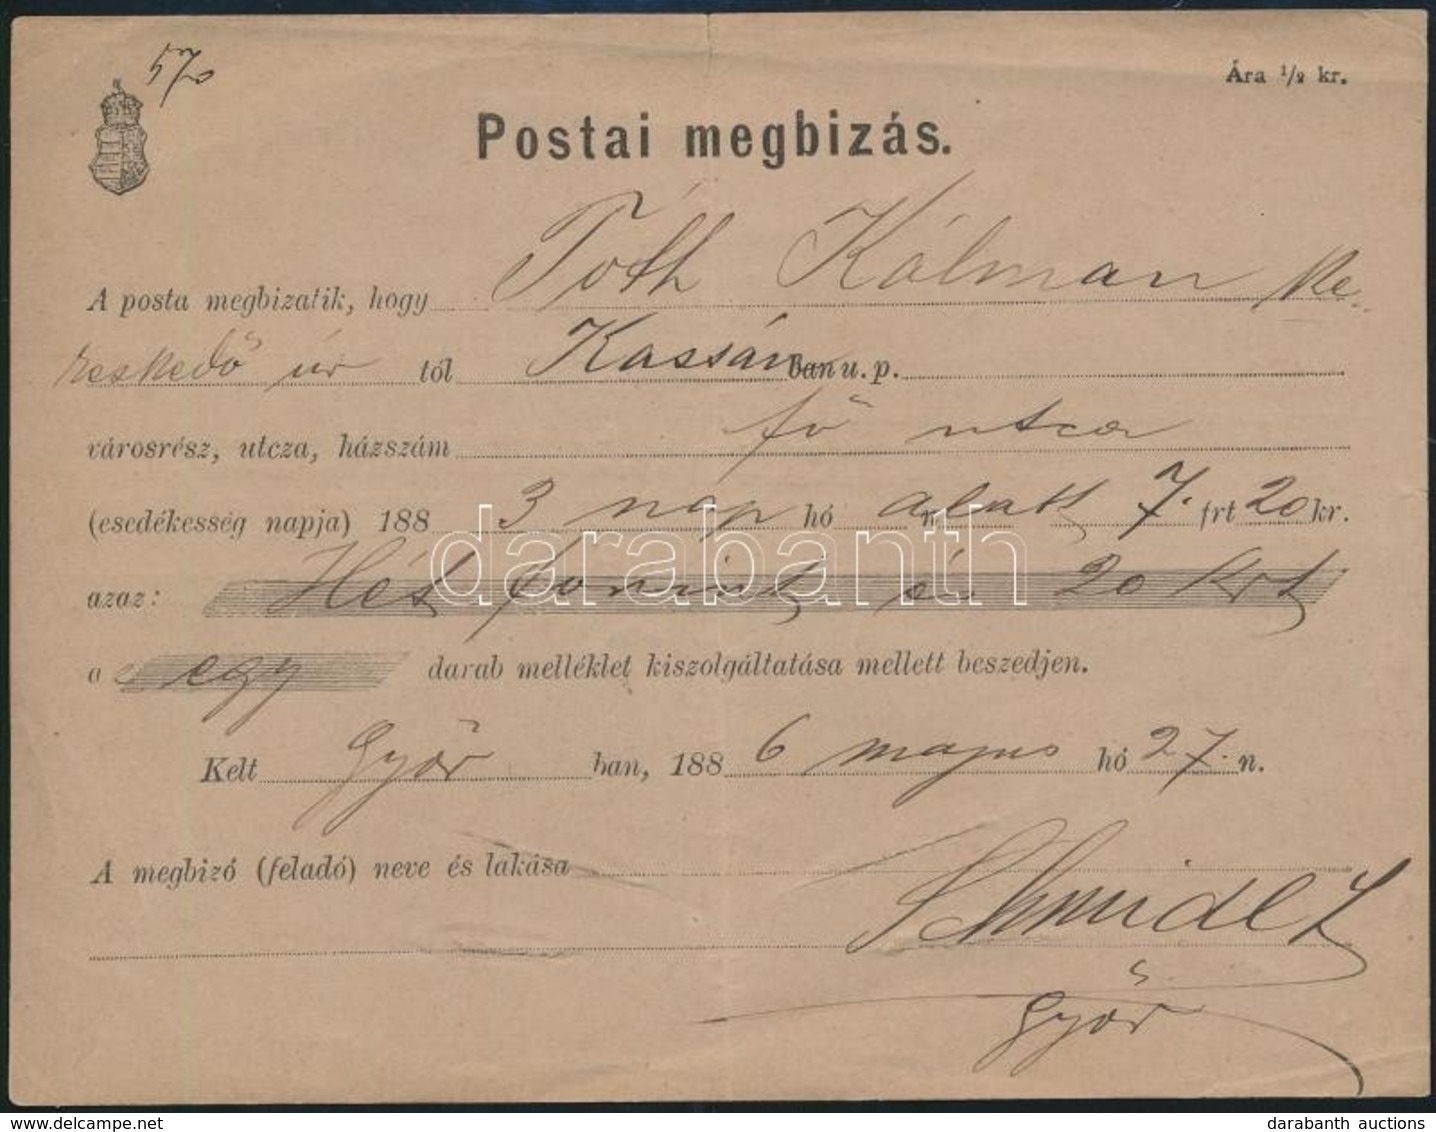 570
Ára 1/2 kr.
Postai megbizás.
A posta megbizatik, hogy Tóth Kálmán ke-
reskedő úr tól Kassán ban u. p.
városrész, utcza, házszám fő utca
(esedékesség napja) 188 3 nap hó alatt n 7. frt 20 kr.
darabanth
azaz: Hét forint és 20 krt
a egy darab melléklet kiszolgáltatása mellett beszedjen.
Kelt Győr ban, 188 6 majus hó 27. n.
A megbizó (feladó) neve és lakása
Győr
delcampe.net
darabanth auctions